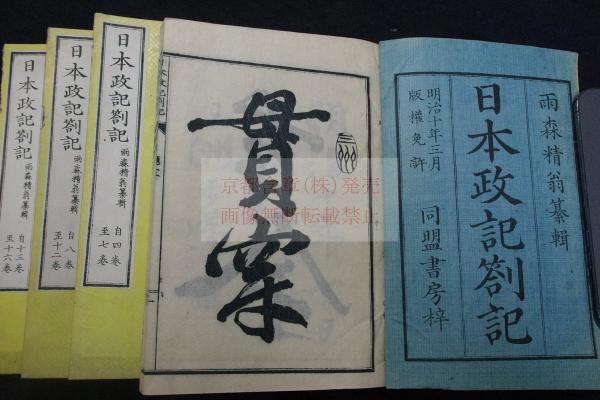 雨森精翁纂輯
日本政記劄記
明治十年三月
版權免許
同盟書房梓
貫
日本政記劄記
京都合章(株)発売
画像無断転載禁止
日本政記劄記
雨森精翁纂輯
自四卷
至七卷
日本政記劄記
雨森精翁纂輯
自八卷
至十二卷
日本政記劄記
雨森精翁纂輯
自十三卷
至十六卷